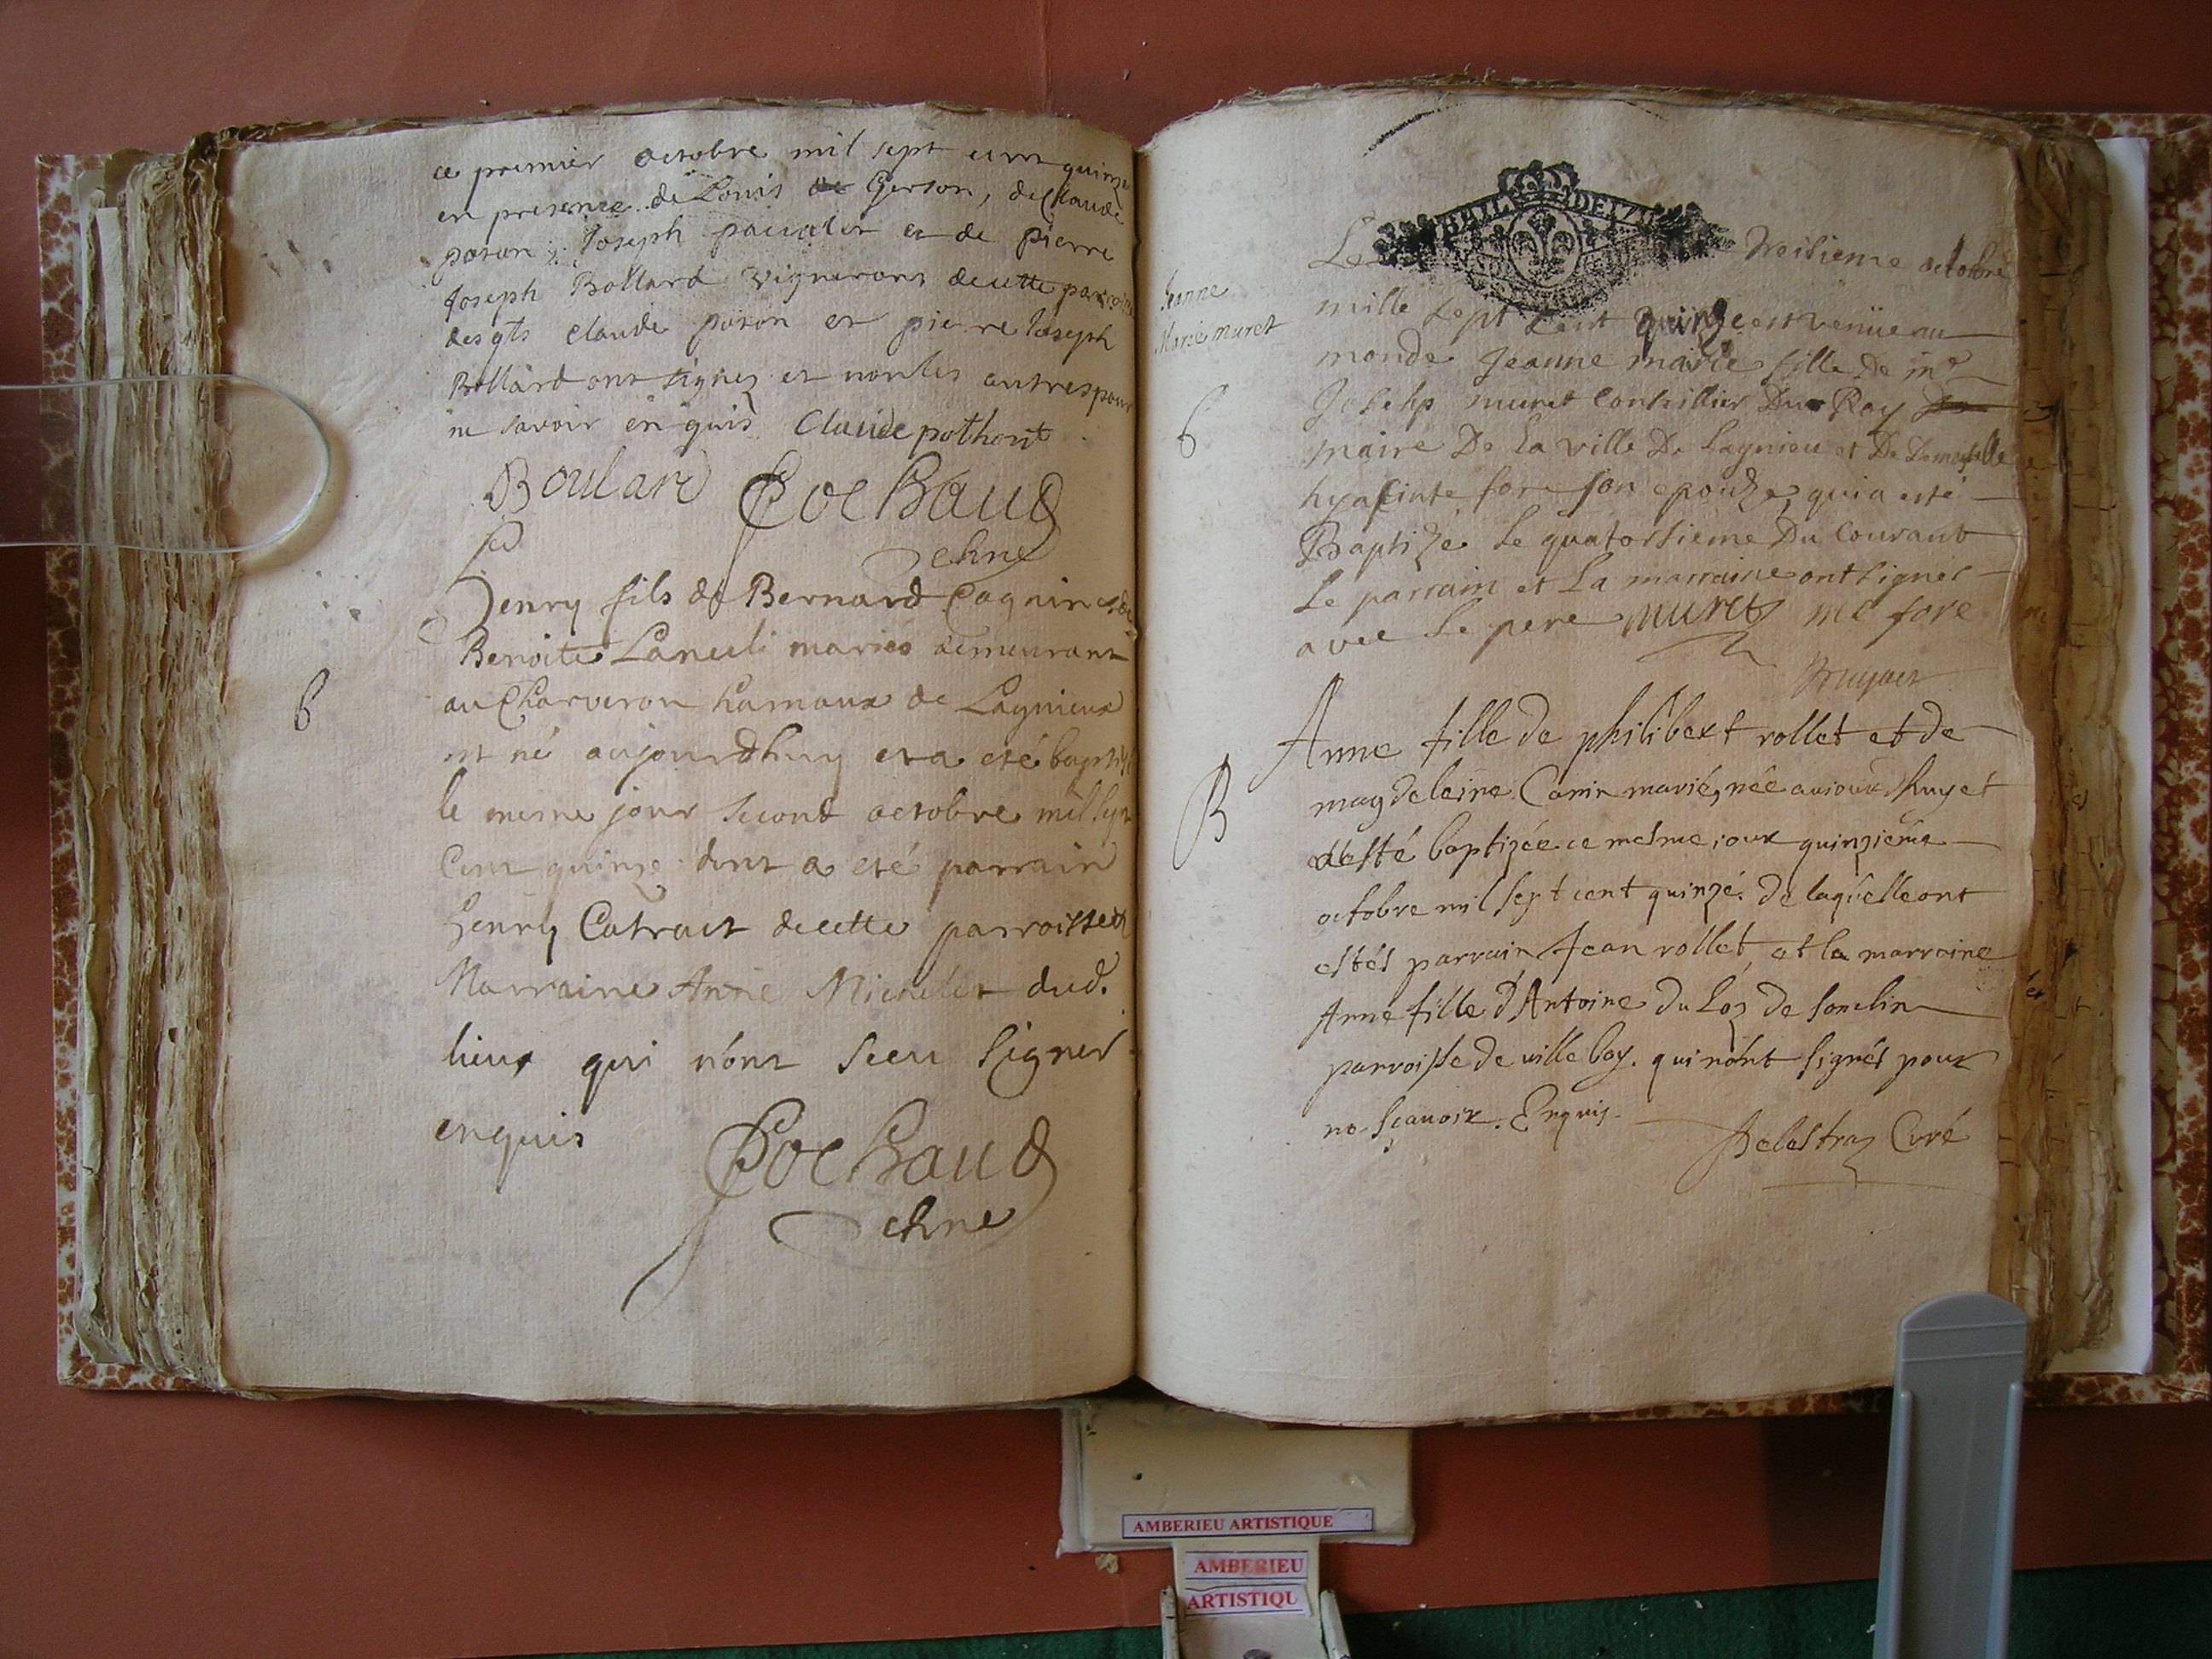 ce premier octobre mil sept cent quinze
en presence de Louis de Gerson, de Claude
poson, Joseph et de pierre
Joseph Bollard vignerons de cette parroisse
des qts claude poson et pierre Joseph
Bollard ont signez et non les autres pour
ne savoir enquis Claude pothont
Boulard Cochaud
chne
B
henry fils de Bernard Cagnin et de
Benoite mariés demeurant
au Charveron hamaux de Lagnieux
est né aujourdhuy et a eté baptisé
le mesme jour second octobre mil sept
Cent quinze dont a eté parrain
henry Catraut de cette parroisse et
Marraine Anne Michelet dud.
lieux qui n'ont sceu signer
enquis Cochaud
chne
Jeanne
Marie muret
B
Le treisieme octobre
mille sept cent quinze est venüe au
monde Jeanne marie fille de me
Josehp muret Conseillier Du Roy
maire De la ville De lagnieu et De Demoiselle
hyacinte fore son epouze, qui a esté
Baptize le quatorsieme Du Courant
Le parrain et La marraine ont signer
avec le pere muret me fore
B
Anne fille de philibert rollet et de
magdeleine Canin marié, née auiourdhuy et
a esté baptizée ce mesme iour quinzieme
octobre mil sept cent quinzé. de laquelle ont
estés parrain Jean rollet, et la marraine
Anne fille d'Antoine du Loz de soudin
parroisse de villeboy. qui n'ont signés pour
ne sçauoir. Enquis.
Delestraz Curé
AMBERIEU ARTISTIQUE
AMBERIEU
ARTISTIQU